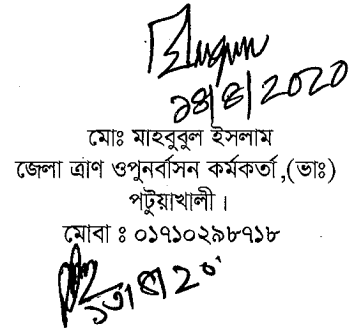 ১৪/৪/2020
মোঃ মাহবুবুল ইসলাম
জেলা ত্রাণ ওপুনর্বাসন কর্মকর্তা,(ভাঃ)
পটুয়াখালী ।
মোবা ঃ ০১৭১০২৯৮৭১৮